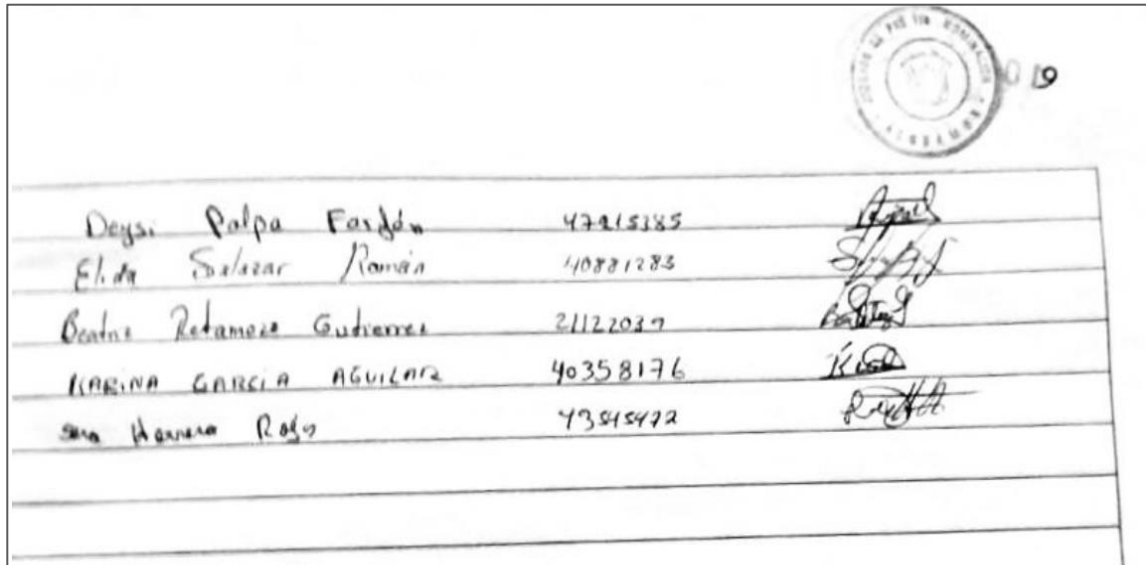 019
Deysi Palpa Fardón 47215385
Elida Salazar Román 40881283
Beatriz Retamozo Gutierrez 21122039
KARINA GARCIA AGUILAR 40358176
Herrera Rojas 43545472